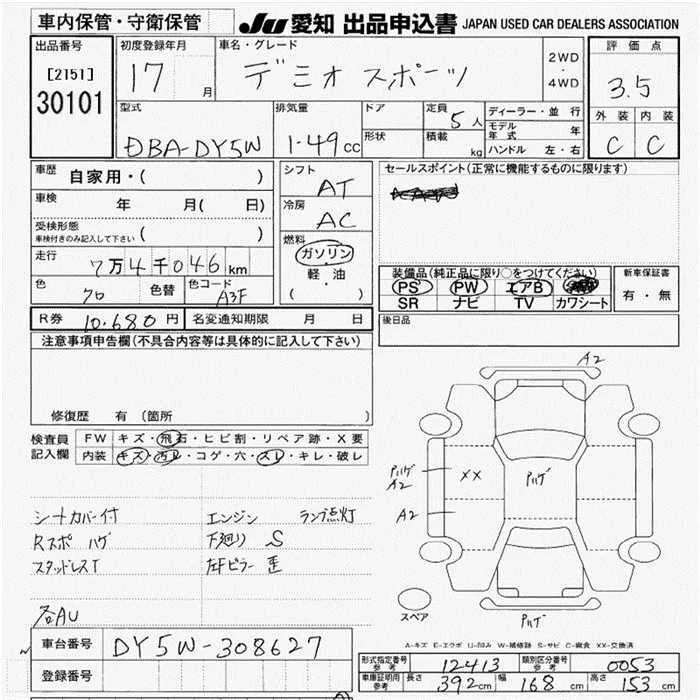 車内保管・守衛保管
JU 愛知 出品申込書 JAPAN USED CAR DEALERS ASSOCIATION
出品番号
[2151]
30101
初度登録年月
17 月
車名・グレード
デミオ スポーツ
2WD
・
4WD
評価点
3.5
外装 内装
C C
型式
DBA-DY5W
排気量
1.49 cc
ドア
形状
定員 5 人
積載 kg
ディーラー・並行
モデル年式 年
ハンドル 左・右
車歴 自家用・( )
車検 年 月( 日)
受検形態
車検付きのみ記入して下さい ( )
走行 7万4千046 km
色 クロ 色替 色コード A3F
シフト AT
冷房 AC
燃料
ガソリン
軽・油
( )
セールスポイント(正常に機能するものに限ります)
装備品(純正品に限り○をつけてください)
PS PW エアB
SR ナビ TV カワシート
新車保証書
有・無
R券 10,680 円 名変通知期限 月 日
後日品
注意事項申告欄(不具合内容等は具体的に記入して下さい)
修復歴 有 (箇所 )
検査員記入欄
FW キズ・飛石・ヒビ割・リペア跡・X要
内装 キズ・汚レ・コゲ・穴・スレ・キレ・破レ
シートカバー付 エンジン ランプ点灯
Rスポ ハゲ 下廻り S
スタッドレスT 左Fピラー 歪
各AU
A2
Pハゲ
A2
XX
Pハゲ
A2
スペア
Pハゲ
A-キズ E-エクボ U-凹み W-補修跡 S-サビ C-腐食 XX-交換済
車台番号 DY5W-308627
登録番号
形式指定番号 参考 12413 類別区分番号 参考 0053
車庫証明用 参考 長さ 392cm 幅 168cm 高さ 153cm